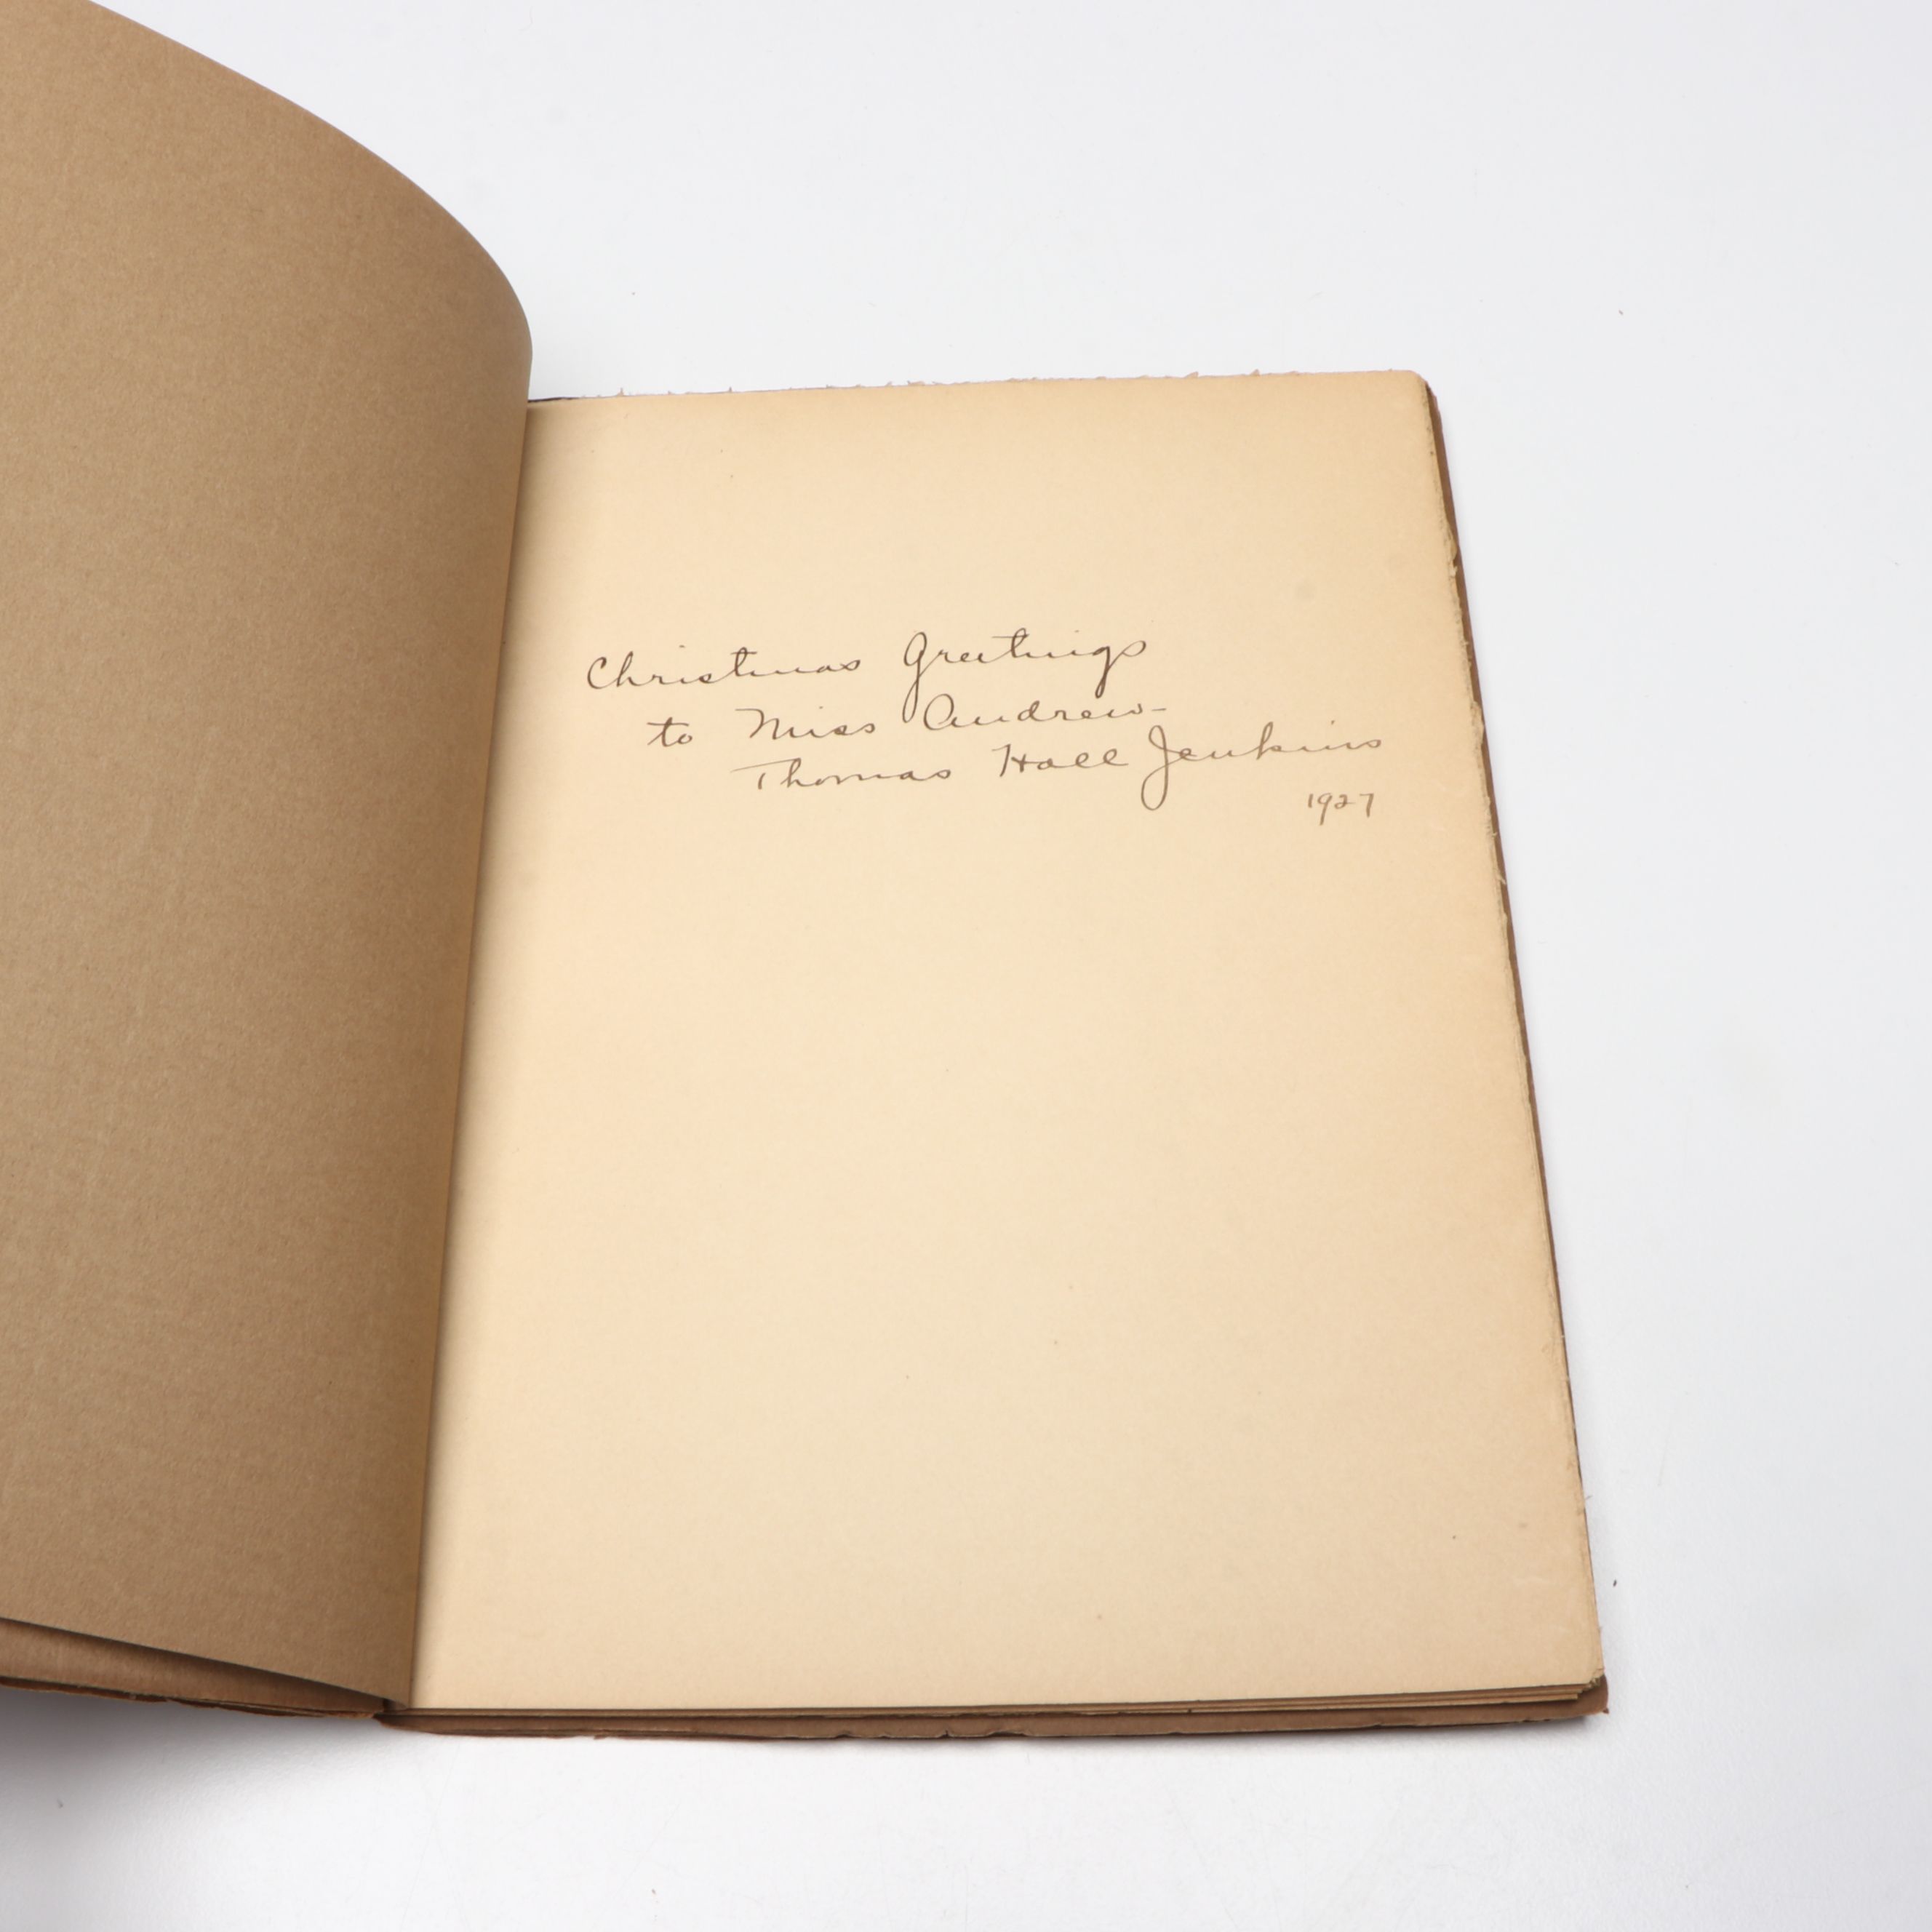 Christmas Greetings
to Miss Andrew-
Thomas Hall Jenkins
1927